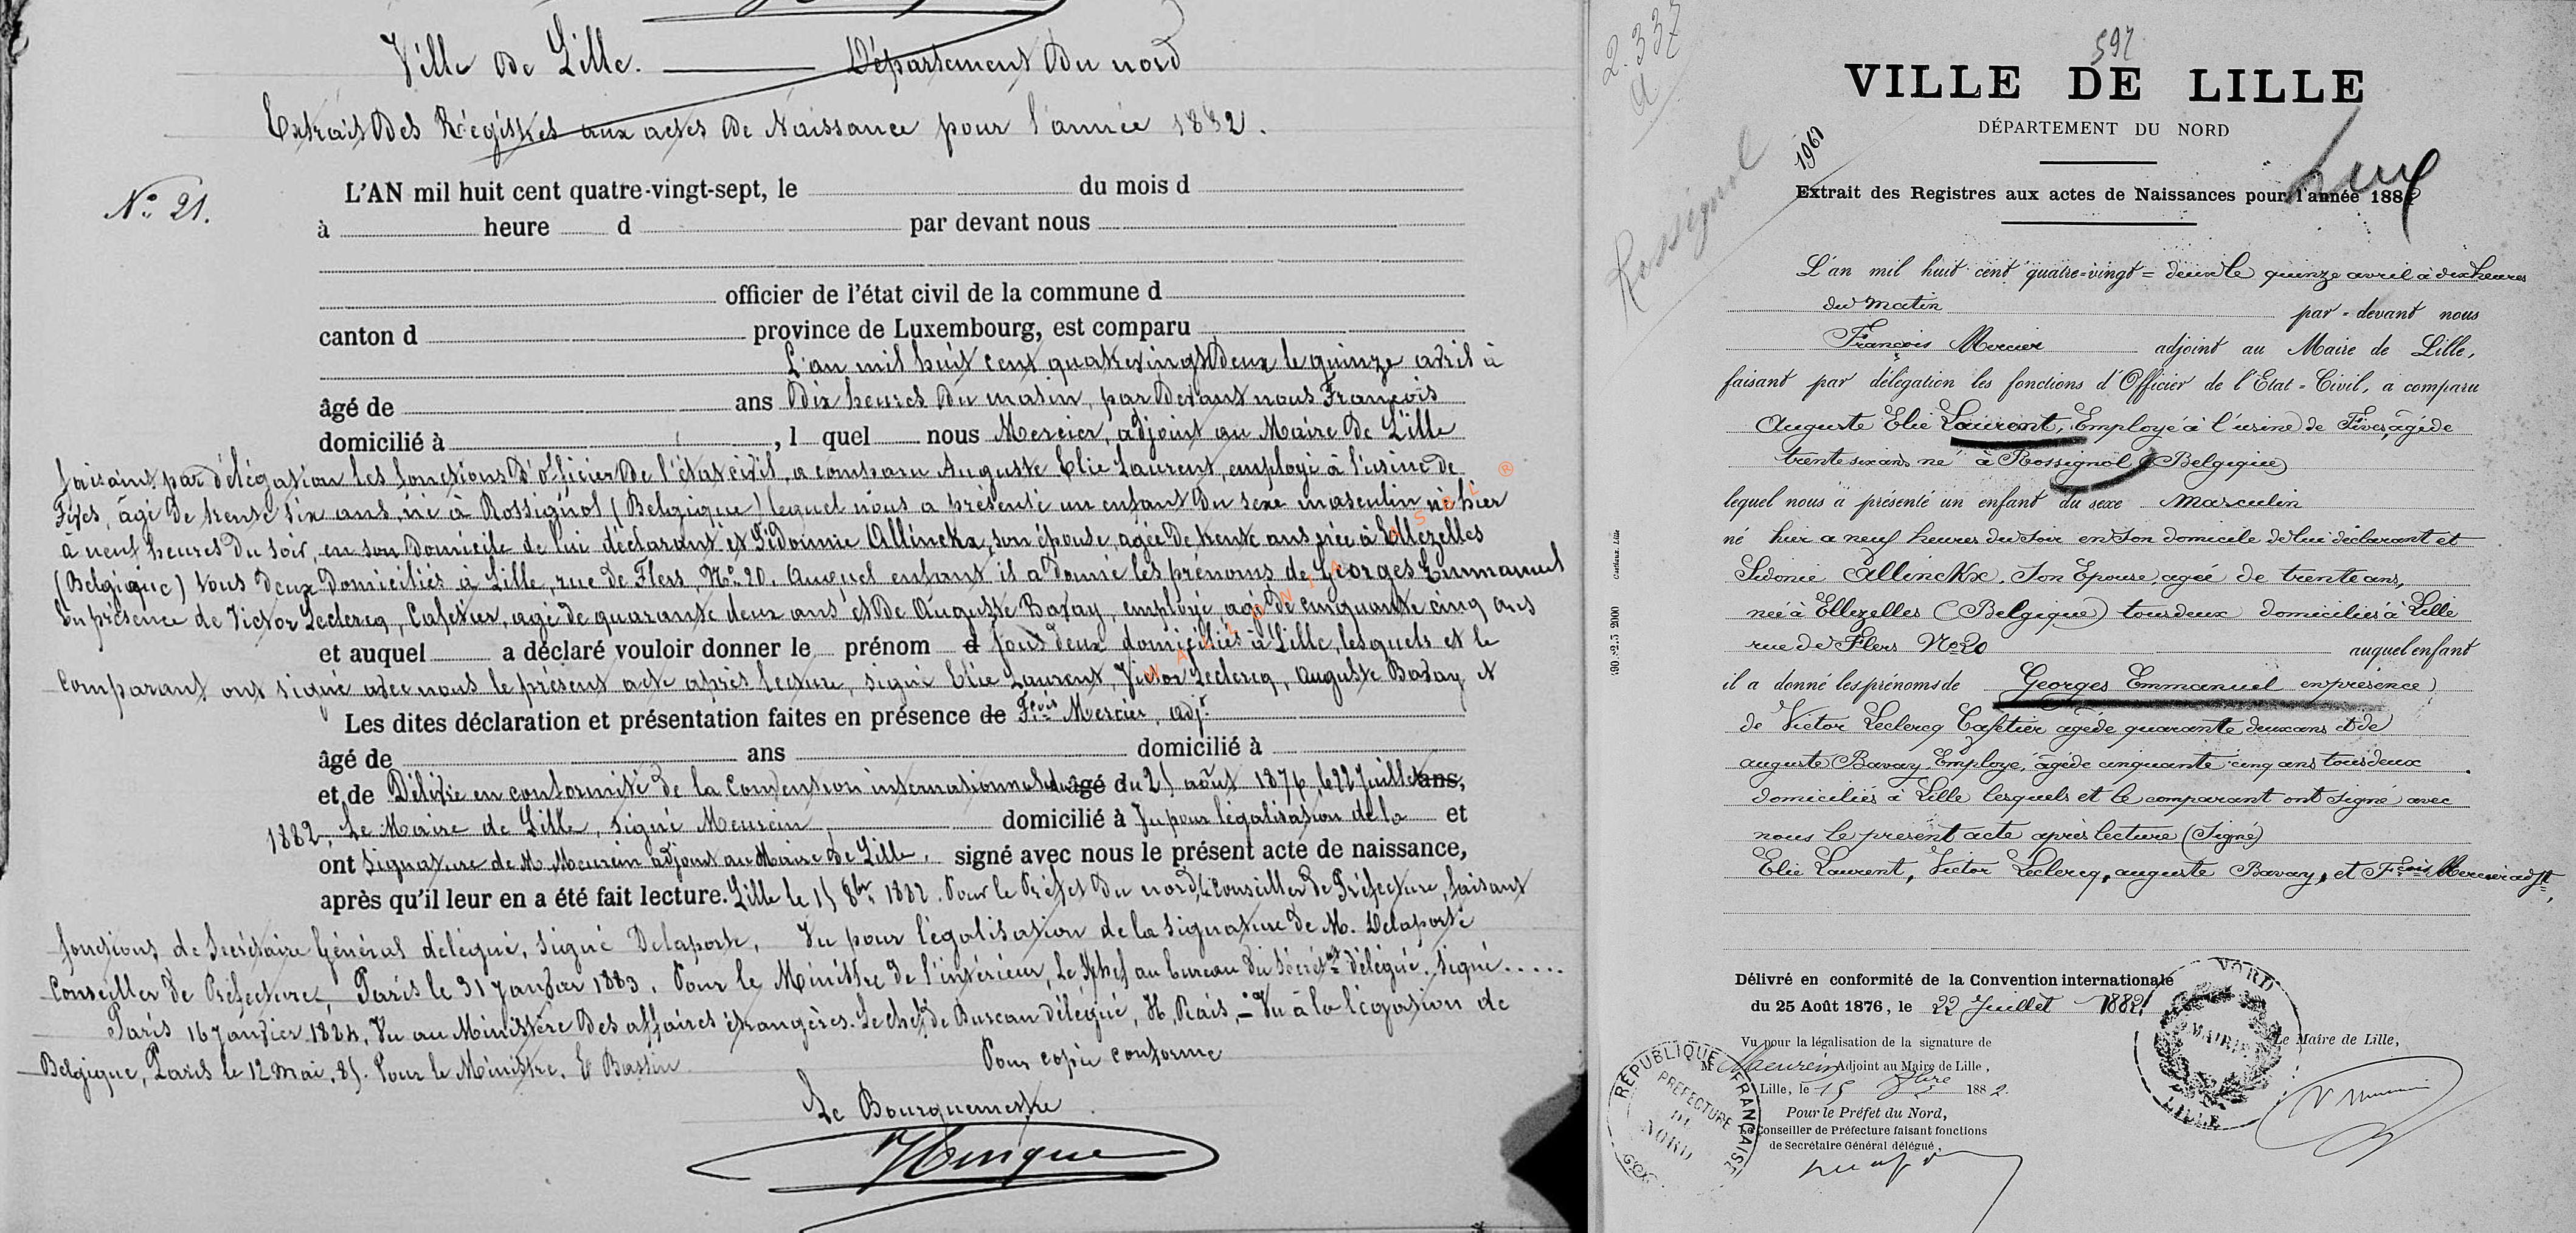 Ville de Lille. Département du nord
Extrait des Régistres aux actes de Naissance pour l'année 1882.
N.º 21.
L'AN mil huit cent quatre-vingt-sept, le du mois d
à heure d par devant nous
officier de l'état civil de la commune d
canton d province de Luxembourg, est comparu
L'an mil huit cent quatrevingt deux le quinze avril à
âgé de ans dix heures du matin, par devant nous François
domicilié à , l quel nous Mercier, adjoint au Maire de Lille
faisant par délégation les fonctions d'officier de l'état civil, a comparu Auguste Elie Laurent, employé à l'usine de
Fives, âgé de trente six ans, né à Rossignol (Belgique) lequel nous a présenté un enfant du sexe masculin né hier
à neuf heures du soir, en son domicile de lui déclarant et Sidonnie Allinckx, son épouse, agée de trente ans, née à Ellezelles
(Belgique) tous deux domiciliés à Lille, rue de Flers, Nº 20. Auquel enfant il a donné les prénoms de Georges Emmanuel
En présence de Victor Leclercq, Cafetier, agé de quarante deux ans, et de Auguste Bavay, employé agé de cinquante cinq ans
et auquel a déclaré vouloir donner le prénom d tous deux domiciliés à Lille, lesquels et le
Comparant ont signé avec nous le présent acte après lecture, signé Elie Laurent, Victor Leclercq, Auguste Bavay et
Les dites déclaration et présentation faites en présence de Fçois Mercier, adjt
âgé de ans domicilié à
et de Délivré en conformité de la Convention internationale âgé du 25 août 1876, le 22 Juillet ans,
1882, Le Maire de Lille, signé Meurein, domicilié à Vu pour légalisation de la et
ont signature de M. Meurein adjoint au Maire de Lille, signé avec nous le présent acte de naissance,
après qu'il leur en a été fait lecture. Lille le 15 8bre 1882. Pour le Préfet du nord, le Conseiller de Préfecture, faisant
fonctions de Secrétaire Général délégué, signé Delaporte, Vu pour légalisation de la signature de M. Delaporte
Conseiller de Préfecture, Paris le 31 Janvier 1883. Pour le Ministre de l'intérieur, Le Chef au bureau du Secrét délégué. signé.....
Paris 16 Janvier 1884, Vu au Ministère des affaires étrangères. Le chef de Bureau délégué, H. Rais, – Vu à la légation de
Belgique, Paris le 12 mai, 85. Pour le Ministre, E Bassin
Pour copie conforme
Le Bourguemestre
Hinque
2.337
a
Rossignol
1960
592
VILLE DE LILLE
DÉPARTEMENT DU NORD
Extrait des Registres aux actes de Naissances pour l'année 1882
L'an mil huit cent quatre-vingt=deux le quinze avril à dix heures
du matin par-devant nous
François Mercier adjoint au Maire de Lille,
faisant par délégation les fonctions d'Officier de l'Etat-Civil, a comparu
Auguste Elie Laurent, Employé à l'usine de Fives, agé de
trente six ans né à Rossignol (Belgique)
lequel nous a présenté un enfant du sexe masculin
né hier a neuf heures du soir en son domicile de lui déclarant et
Sidonie Allinckx, son Epouse, agée de trente ans,
née à Ellezelles (Belgique) tous deux domiciliés à Lille
rue de Flers Nº 20 auquel enfant
il a donné les prénoms de Georges Emmanuel en présence
de Victor Leclercq Cafétier agé de quarante deux ans et de
auguste Bavay, Employé, agé de cinquante cinq ans tous deux
domiciliés à Lille lesquels et le comparant ont signé avec
nous le présent acte après lecture (Signé)
Elie Laurent, Victor Leclercq, auguste Bavay, et Fçois Mercier adjt,
Délivré en conformité de la Convention internationale
du 25 Août 1876, le 22 Juillet 1882
Le Maire de Lille,
Vu pour la légalisation de la signature de
M Meurein Adjoint au Maire de Lille,
Lille, le 15 8bre 1882.
Pour le Préfet du Nord,
Le Conseiller de Préfecture faisant fonctions
de Secrétaire Général délégué,
RÉPUBLIQUE FRANÇAISE
PREFECTURE DU NORD
NORD
MAIRIE
LILLE